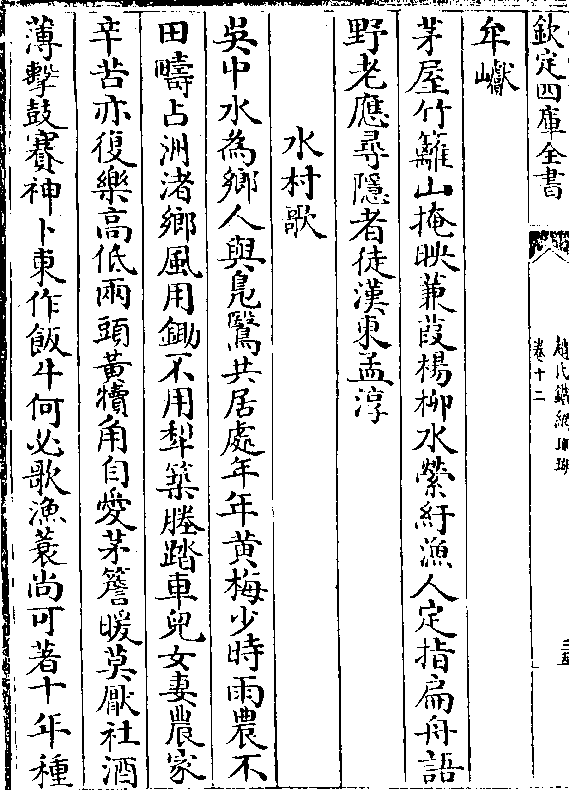 欽定四庫全書
趙氏鐵網珊瑚
卷十二
牟巘
茅屋竹籬山掩映蒹葭楊柳水縈紆漁人定指扁舟語
野老應尋隱者徒漢東孟淳
水村歌
吳中水為鄉人與鳬鷖共居處年年黄梅少時雨農不
田疇占洲渚鄉風用鋤不用犁築塍踏車兒女妻農家
辛苦亦復樂高低兩頭黄犢角自愛茅簷暖莫厭社酒
薄擊鼓賽神卜東作飯牛何必歌漁蓑尚可著十年種